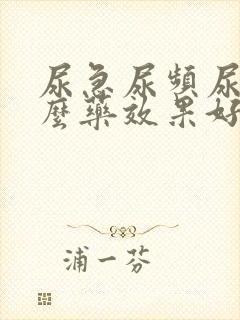 尿急尿頻尿
麼藥效果好
浦一芬